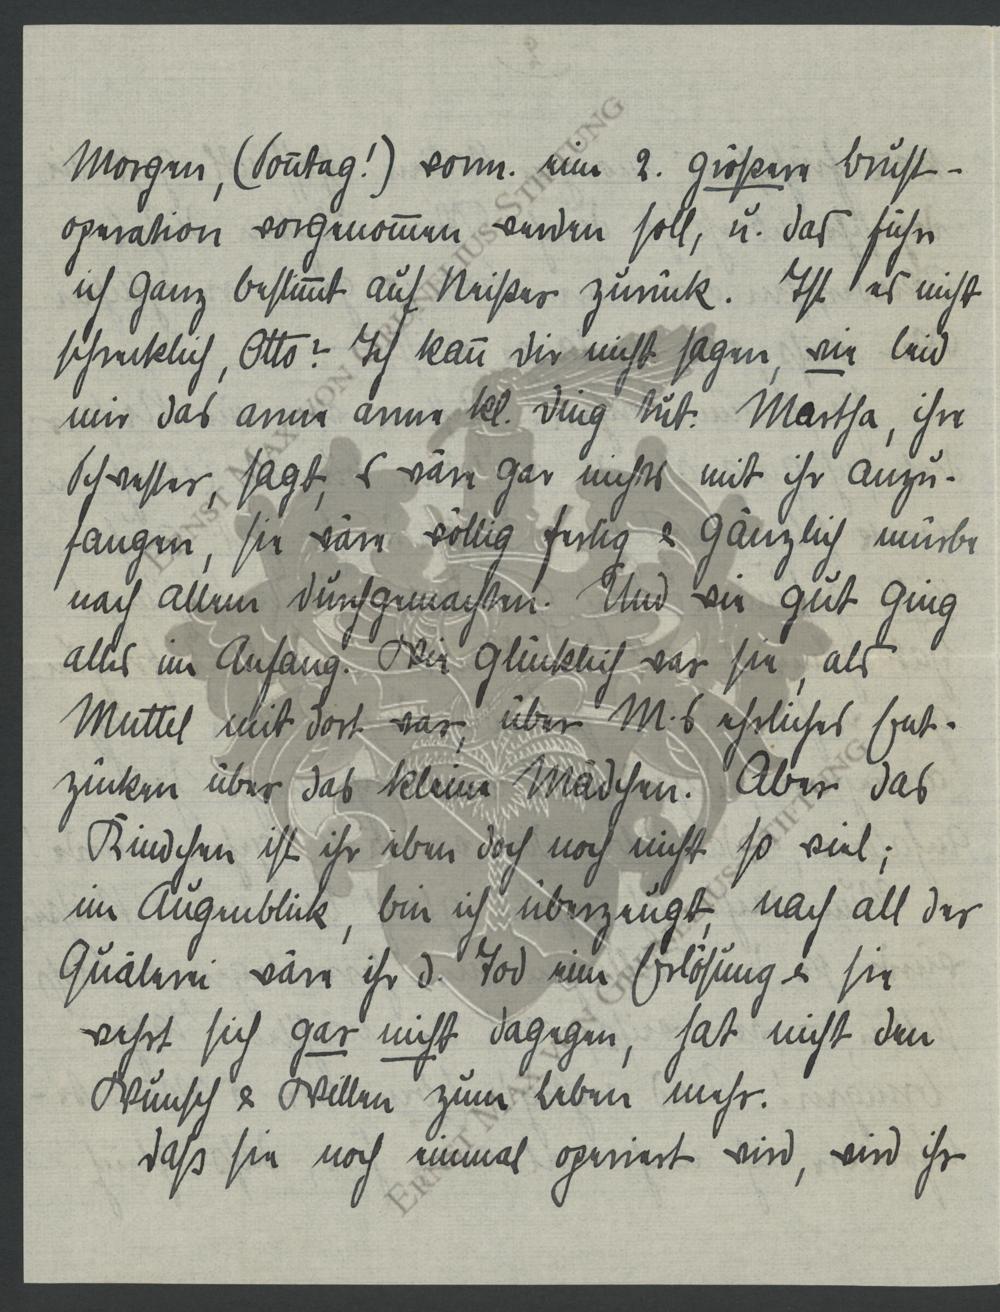 Morgen, (Soñtag!) vorm. eine 2. größere Brust-
operation vorgenom̄en werden soll, u. das führe
ich ganz bestim̄t auf Neißer zurück. Ist es nicht
schrecklich, Otto? Ich kan̄ dir nicht sagen, wie leid
mir das arme arme kl. Ding tut. Martha, ihre
Schwester, sagt, es wäre gar nichts mit ihr anzu-
fangen, sie wäre völlig fertig & gänzlich mürbe
nach allem Durchgemachten. Und wie gut ging
alles im Anfang. Wie glücklich war sie, als
Muttel mit dort war, über M.s ehrliches Ent-
zücken über das kleine Mädchen. Aber das
Kindchen ist ihr eben doch noch nicht so viel;
im Augenblick, bin ich überzeugt, nach all der
Quälerei wäre ihr d. Tod eine Erlösung & sie
wehrt sich gar nicht dagegen, hat nicht den
Wunsch & Willen zum Leben mehr.
Daß sie noch einmal operiert wird, wird ihr